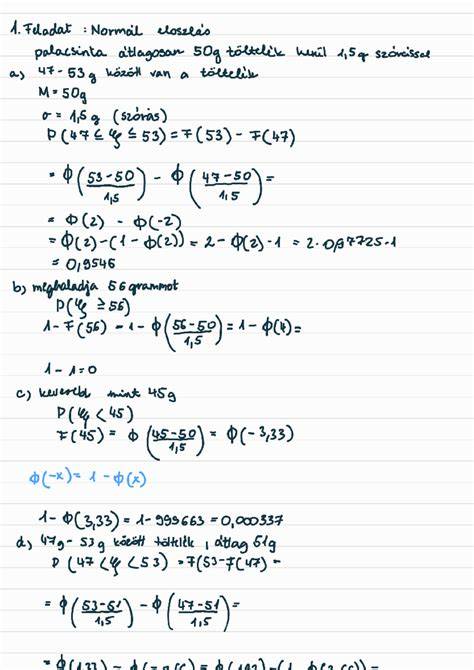 1. Feladat : Normál eloszlás
palacsinta átlagosan 50g töltelék kerül 1,5g szórással
a) 47-53g között van a töltelék
M = 50g
σ = 1,5 g (szórás)
P(47 ≤ ξ ≤ 53) = F(53) - F(47)
= Φ(53-50/1,5) - Φ(47-50/1,5) =
= Φ(2) - Φ(-2)
= Φ(2) - (1 - Φ(2)) = 2 - Φ(2) - 1 = 2 · 0,97725 - 1
= 0,9546
b) meghaladja 56 grammot
P(ξ ≥ 56)
1 - F(56) - 1 - Φ(56-50/1,5) = 1 - Φ(4) =
1 - 1 = 0
c) kevesebb mint 45g
P(ξ < 45)
F(45) = Φ(45-50/1,5) = Φ(-3,33)
Φ(-x) = 1 - Φ(x)
1 - Φ(3,33) = 1 - 999663 = 0,000337
d) 47g - 53g között töltelék , átlag 51g
P(47 < ξ < 53) = F(53 - F(47) -
= Φ(53-51/1,5) - Φ(47-51/1,5) =